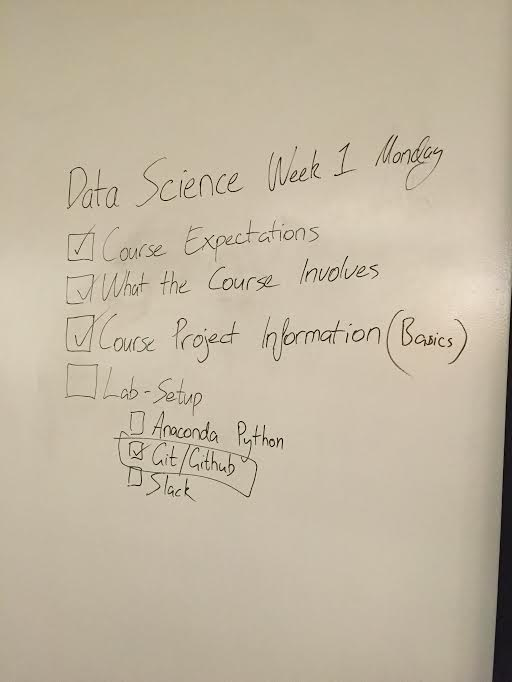 Data Science Week 1 Monday
☑ Course Expectations
☑ What the Course Involves
☑ Course Project Information (Basics)
☐ Lab-Setup
☐ Anaconda Python
☑ Git/Github
☐ Slack